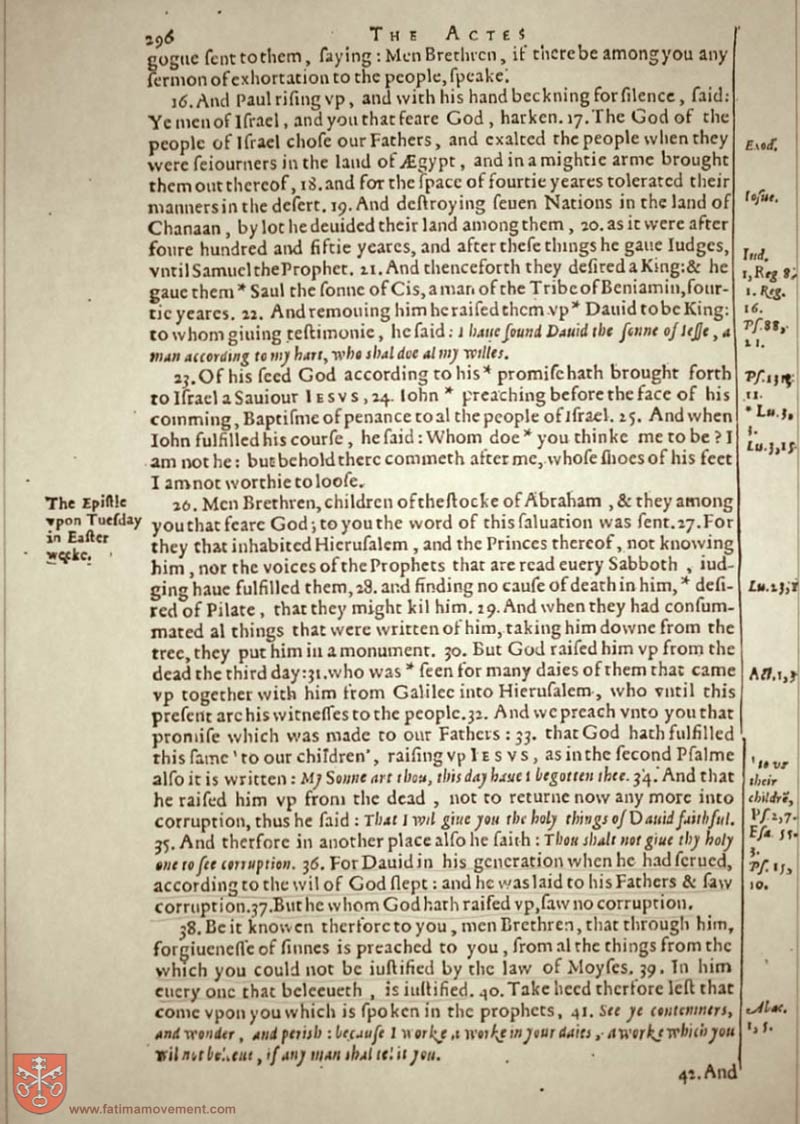 296
THE ACTES
gogue ſent to them, ſaying: Men Brethren, if there be among you any
ſermon of exhortation to the people, ſpeake.
16. And Paul riſing vp, and with his hand beckning for ſilence, ſaid:
Ye men of Iſrael, and you that feare God, harken. 17. The God of the
people of Iſrael choſe our Fathers, and exalted the people when they
were ſeiourners in the land of Ægypt, and in a mightie arme brought
them out thereof, 18. and for the ſpace of fourtie yeares tolerated their
manners in the deſert. 19. And deſtroying ſeuen Nations in the land of
Chanaan, by lot he deuided their land among them, 20. as it were after
foure hundred and fiftie yeares, and after theſe things he gaue Iudges,
vntil Samuel the Prophet. 21. And thenceforth they deſired a King: & he
gaue them * Saul the ſonne of Cis, a man of the Tribe of Beniamin, four-
tie yeares. 22. And remouing him he raiſed them vp * Dauid to be King:
to whom giuing teſtimonie, he ſaid: I haue found Dauid the ſonne of Ieſſe, a
man according to my hart, who shal doe al my willes.
23. Of his ſeed God according to his * promiſe hath brought forth
to Iſrael a Sauiour IESVS, 24. Iohn * preaching before the face of his
comming, Baptiſme of penance to al the people of Iſrael. 25. And when
Iohn fulfilled his courſe, he ſaid: Whom doe * you thinke me to be? I
am not he: but behold there commeth after me, whoſe ſhoes of his feet
I am not worthie to looſe.
26. Men Brethren, children of the ſtocke of Abraham, & they among
you that feare God; to you the word of this ſaluation was ſent. 27. For
they that inhabited Hieruſalem, and the Princes thereof, not knowing
him, nor the voices of the Prophets that are read euery Sabboth, iud-
ging haue fulfilled them, 28. and finding no cauſe of death in him, * deſi-
red of Pilate, that they might kil him. 29. And when they had conſum-
mated al things that were written of him, taking him downe from the
tree, they put him in a monument. 30. But God raiſed him vp from the
dead the third day: 31. who was * ſeen for many daies of them that came
vp together with him from Galilee into Hieruſalem, who vntil this
preſent are his witneſſes to the people. 32. And we preach vnto you that
promiſe which was made to our Fathers: 33. that God hath fulfilled
this ſame 'to our children', raiſing vp IESVS, as in the ſecond Pſalme
alſo it is written: My Sonne art thou, this day haue I begotten thee. 34. And that
he raiſed him vp from the dead, not to returne now any more into
corruption, thus he ſaid: That I wil giue you the holy things of Dauid faithful.
35. And therfore in another place alſo he ſaith: Thou shalt not giue thy holy
one to ſee corruption. 36. For Dauid in his generation when he had ſerued,
according to the wil of God ſlept: and he was laid to his Fathers & ſaw
corruption. 37. But he whom God hath raiſed vp, ſaw no corruption.
38. Be it knowen therfore to you, men Brethren, that through him,
forgiueneſſe of ſinnes is preached to you, from al the things from the
which you could not be iuſtified by the law of Moyſes. 39. In him
euery one that beleeueth, is iuſtified. 40. Take heed therfore leſt that
come vpon you which is ſpoken in the prophets, 41. See ye contemners,
and wonder, and perish: becauſe I worke a worke in your daies, a worke which you
wil not beleue, if any man shal tel it you.
42. And
The Epiſtle
vpon Tueſday
in Eaſter
weeke.
Exod.
Ioſue.
Iud.
1, Reg 8.
1. Reg.
16.
Pſ. 88,
21.
11.
* Lu. 3,
3.
Lu. 3, 15
Lu. 23,
Act. 1, 3
'to vs
their
childrē,
Pſ. 2, 7.
Eſa. 55.
3.
Pſ. 15,
10.
Abac.
1, 5.
www.fatimamovement.com